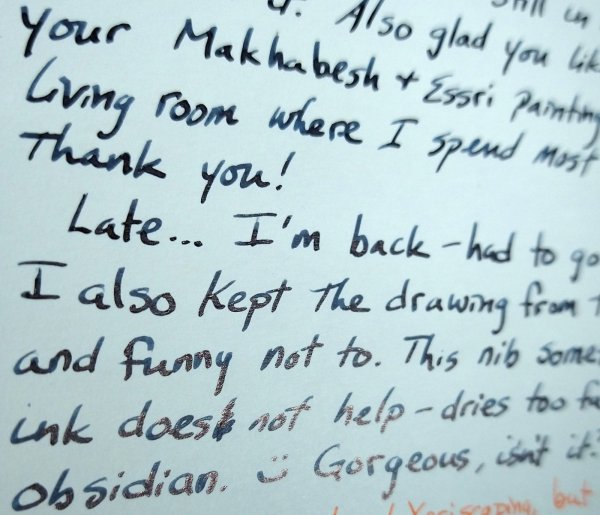 Also glad you
your Makhabesh + Essri painting
living room where I spend most
Thank you!
Late... I'm back - had to go
I also kept the drawing from
and funny not to. This nib some
ink does not help - dries too
obsidian. :) Gorgeous, isn't it?
but